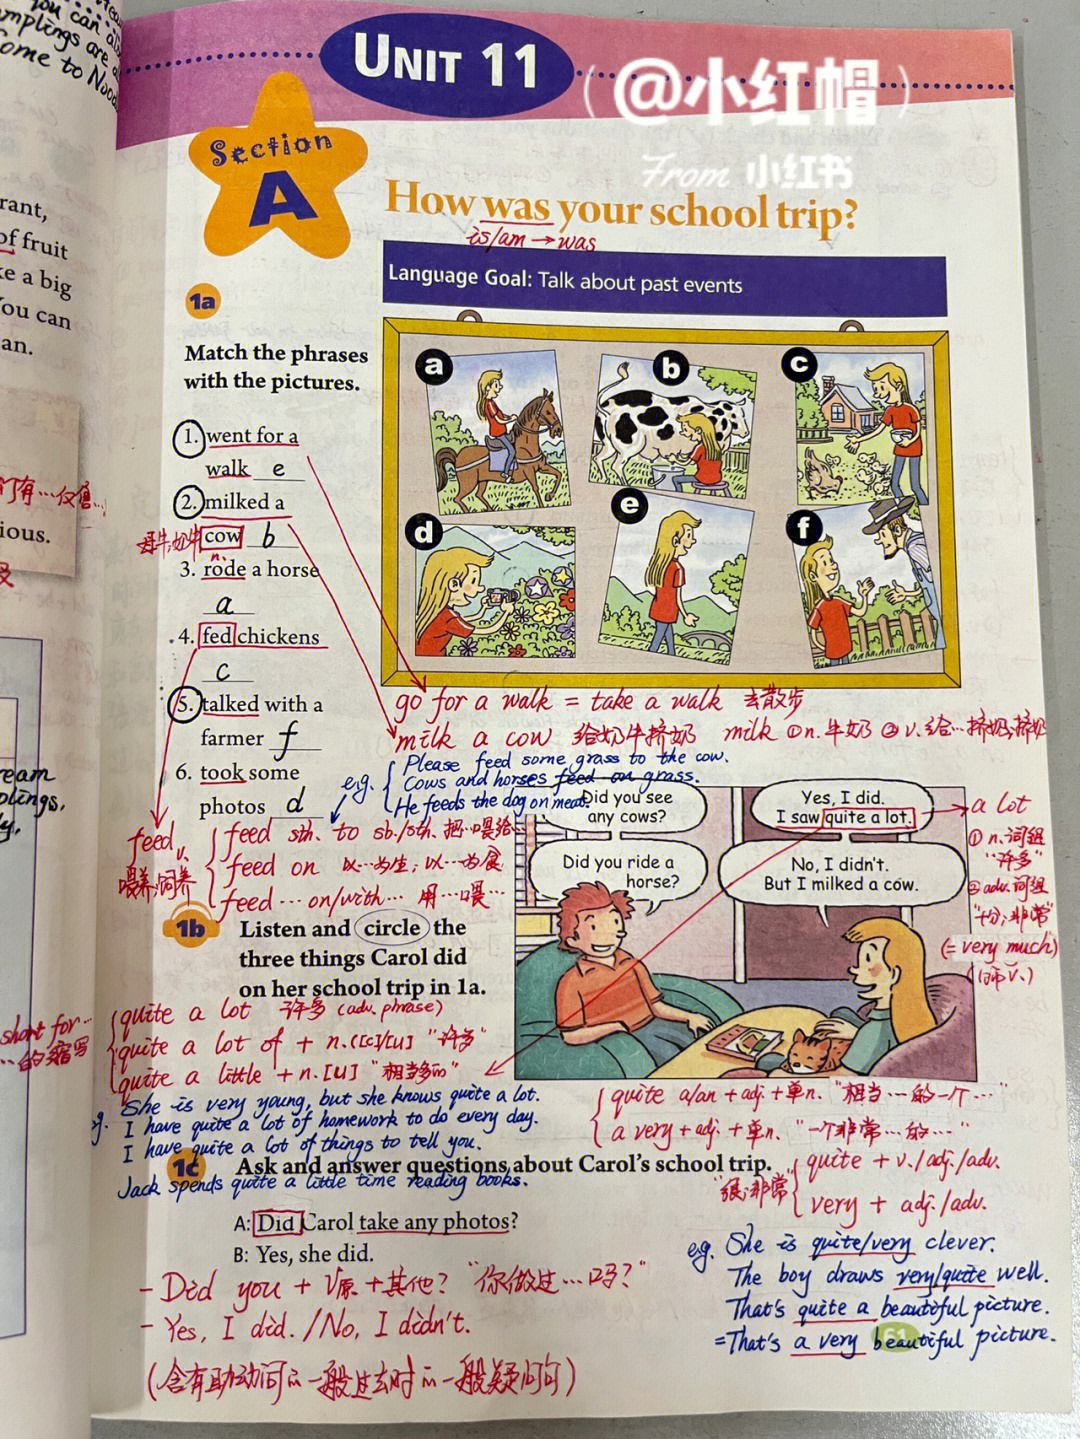 you can al
mplings are
Come to Nood
rant,
of fruit
ke a big
You can
an.
ious.
ream
short for…
…的缩写
UNIT 11
(@小红帽)
From 小红书
Section
A
How was your school trip?
is/am → was
Language Goal: Talk about past events
1a
Match the phrases
with the pictures.
1. went for a
walk e
2. milked a
cow b
n.
3. rode a horse
a
4. fed chickens
c
5. talked with a
farmer f
6. took some
photos d
a
b
c
d
e
f
go for a walk = take a walk 去散步
milk a cow 给奶牛挤奶 milk ①n. 牛奶 ②v. 给…挤奶;挤奶
e.g. Please feed some grass to the cow.
Cows and horses feed on grass.
He feeds the dog on meat.
feed v.
喂养;饲养
feed sth. to sb./sth. 把…喂给…
feed on 以…为生;以…为食
feed … on/with … 用…喂…
Did you see
any cows?
Yes, I did.
I saw quite a lot.
Did you ride a
horse?
No, I didn't.
But I milked a cow.
a lot
① n.词组
"许多"
② adv.词组
"十分;非常"
(= very much)
1b
Listen and circle the
three things Carol did
on her school trip in 1a.
quite a lot 许多 (adv. phrase)
quite a lot of + n.([c]/[u]) "许多"
quite a little + n.[u] "相当多的"
e.g. She is very young, but she knows quite a lot.
I have quite a lot of homework to do every day.
I have quite a lot of things to tell you.
Jack spends quite a little time reading books.
quite a/an + adj. + 单n. "相当…的一个…"
a very + adj. + 单n. "一个非常…的…"
"很;非常" quite + v./adj./adv.
very + adj./adv.
1c
Ask and answer questions about Carol's school trip.
A: Did Carol take any photos?
B: Yes, she did.
- Did you + V原 + 其他? "你做过…吗?"
- Yes, I did. / No, I didn't.
(含有助动词的一般过去时的一般疑问句)
e.g. She is quite/very clever.
The boy draws very/quite well.
That's quite a beautiful picture.
= That's a very beautiful picture.
61